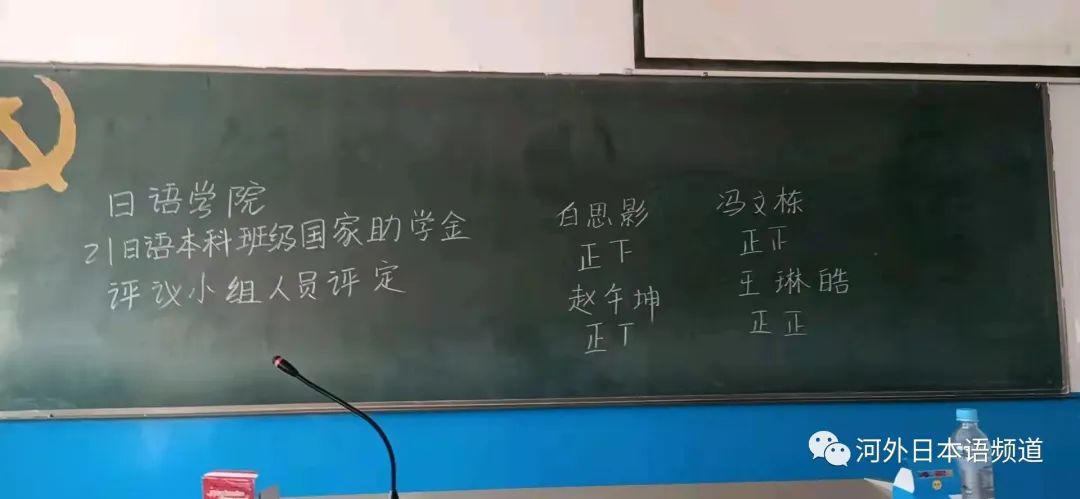 日语学院
21日语本科班级国家助学金
评议小组人员评定
白思影
正下
赵午坤
正丅
冯文栋
正正
王琳皓
正正
河外日本语频道